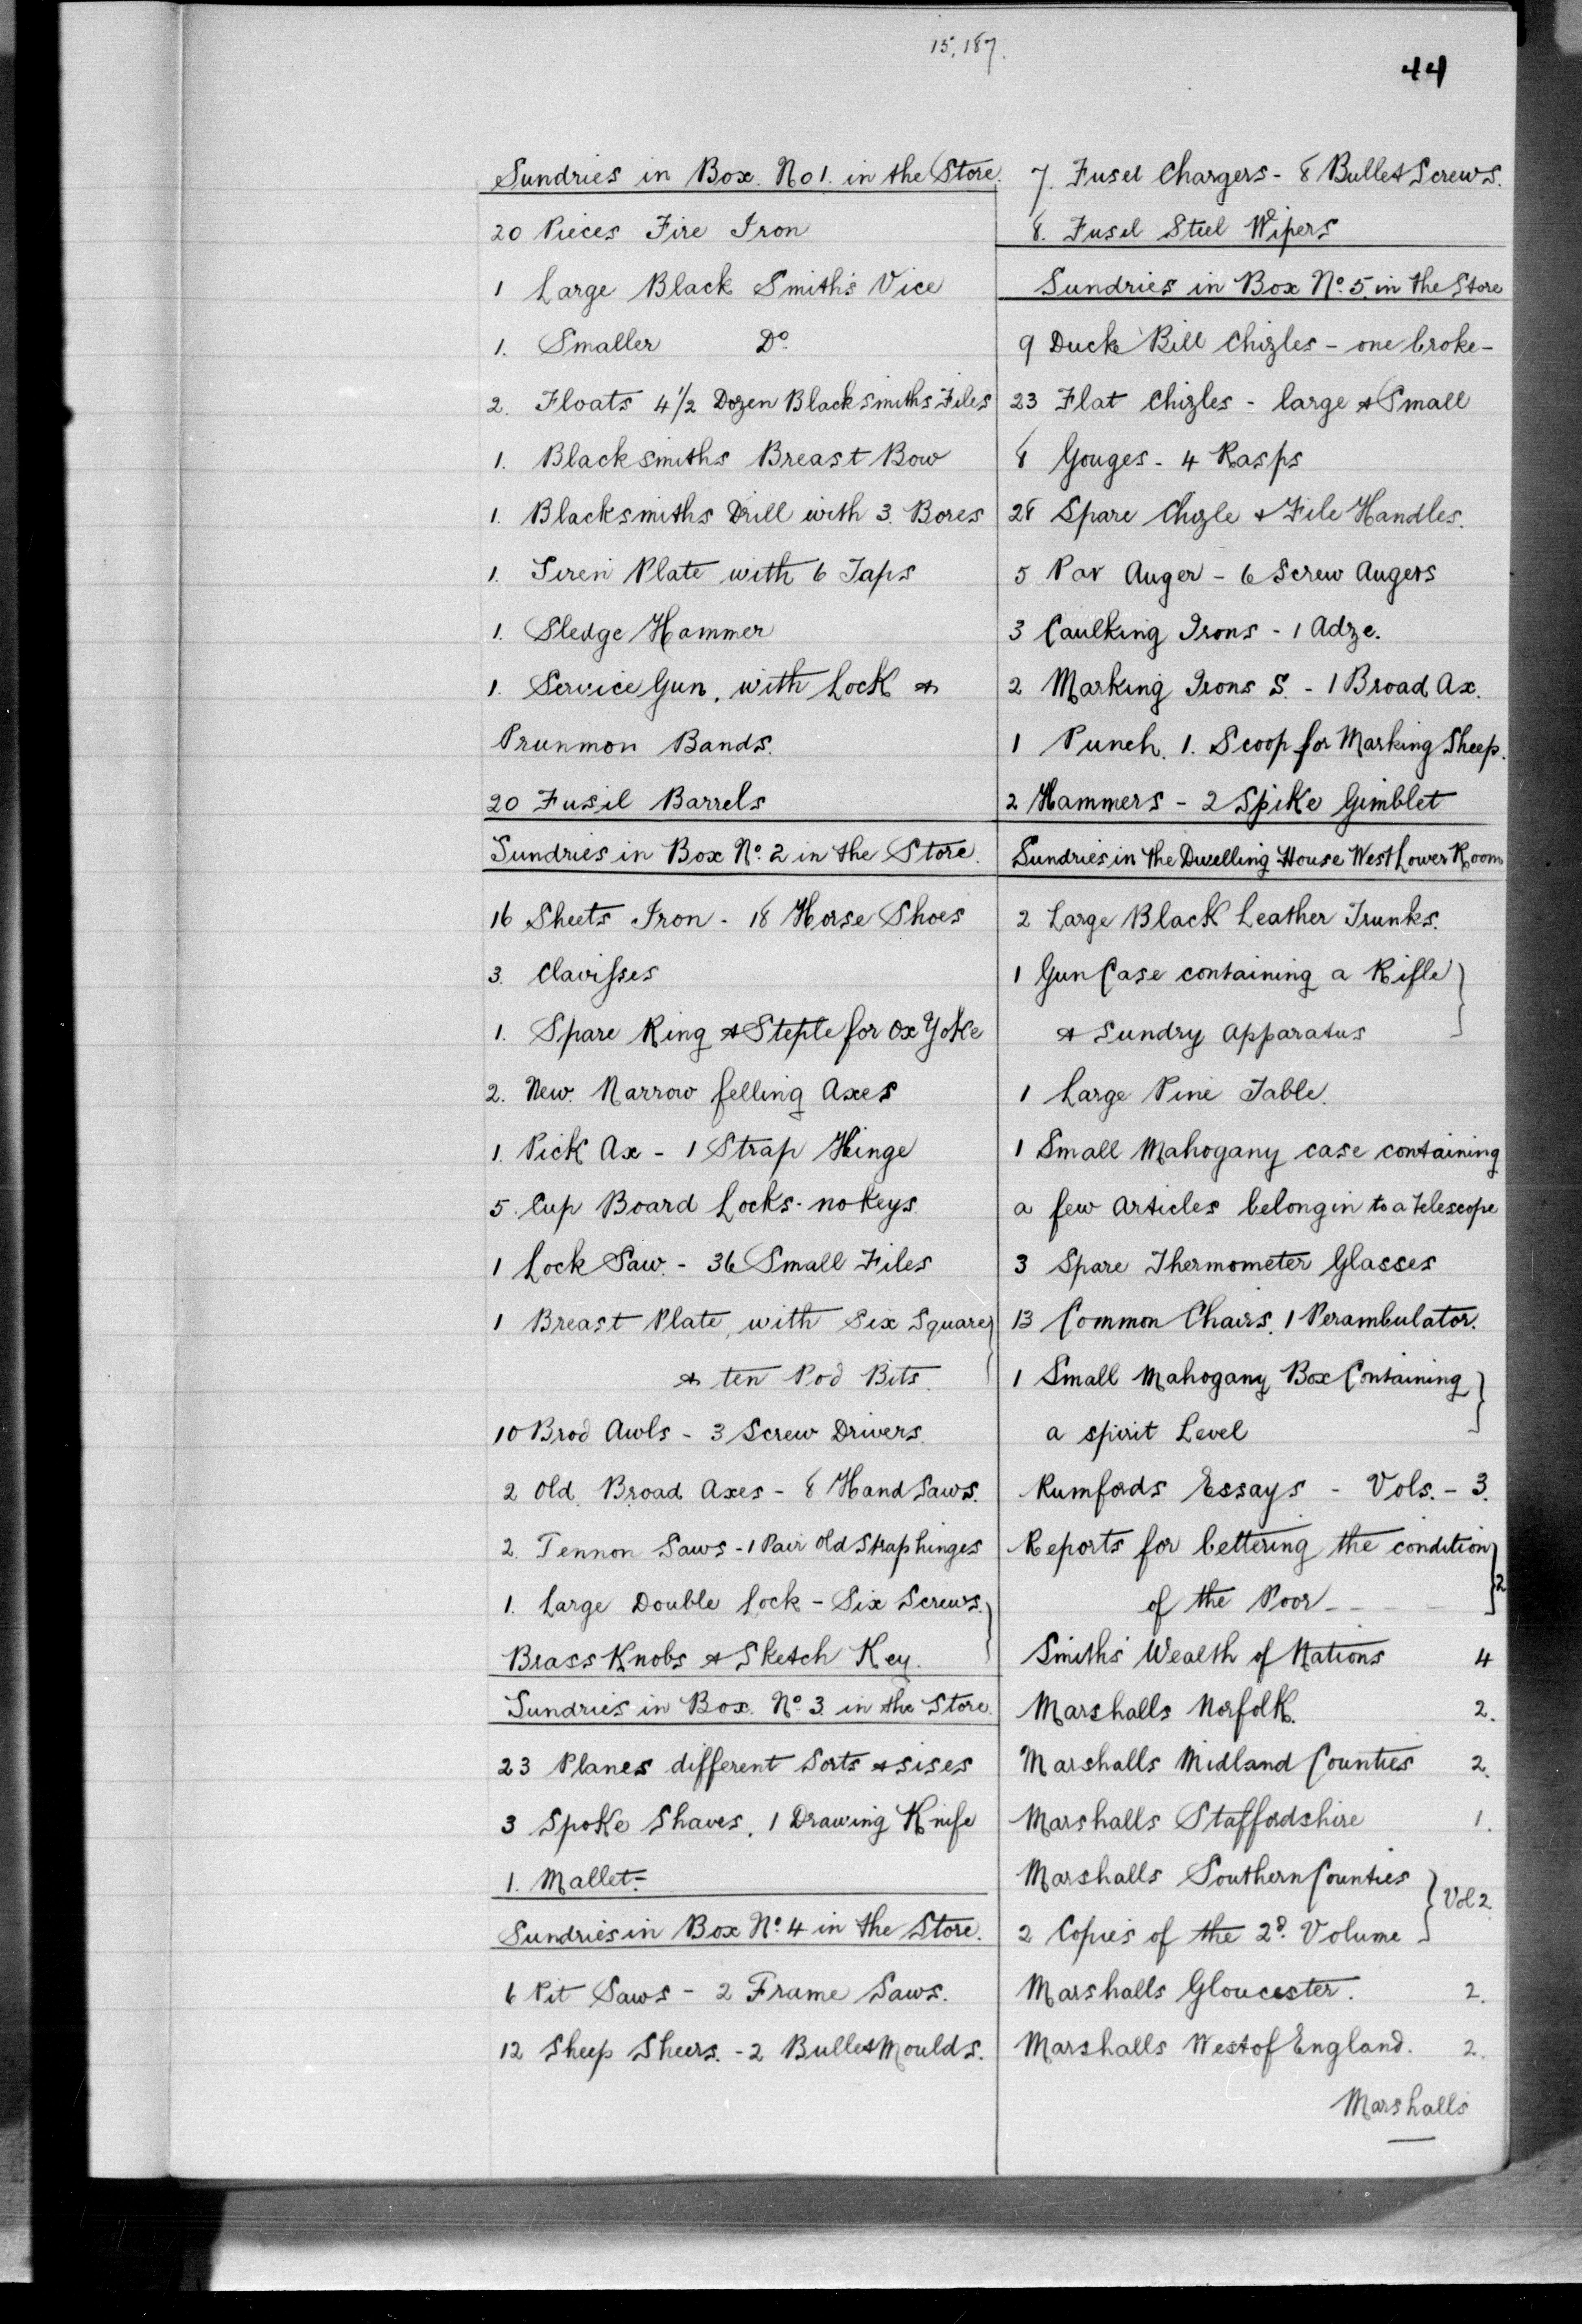 15,187.
44
Sundries in Box. No 1. in the Store.
20 Pieces Fire Iron
1 Large Black Smith's Vice
1. Smaller Do.
2. Floats 4 1/2 Dozen Blacksmiths Files
1. Blacksmiths Breast Bow
1. Blacksmiths Drill with 3. Bores
1. Siren Plate with 6 Taps
1. Sledge Hammer
1. Service Gun, with Lock &
Prunmon Bands.
20 Fusil Barrels
Sundries in Box No. 2 in the Store.
16 Sheets Iron - 18 Horse Shoes
3. Clavisses
1. Spare Ring & Steple for Ox Yoke
2. New. Narrow felling Axes
1. Pick Ax - 1 Strap Hinge
5. Cup Board Locks - no keys.
1 Lock Saw. - 36 Small Files
1 Breast Plate, with Six Square
& ten Pod Bits.
10 Brod Awls - 3 Screw Drivers.
2 Old Broad Axes - 8 Hand Saws.
2. Tennon Saws - 1 Pair Old Strap hinges
1. Large Double Lock - Six Screws.
Brass Knobs & Sketch Key.
Sundries in Box. No. 3. in the Store.
23 Planes different Sorts & sises
3 Spoke Shaves, 1 Drawing Knife
1. Mallet.-
Sundries in Box No. 4 in the Store.
6 Pit Saws - 2 Frame Saws.
12 Sheep Sheers. - 2 Bullet Moulds.
7. Fusel Chargers - 8 Bullet Screws.
8. Fusel Steel Wipers
Sundries in Box No. 5. in the Store
9 Duck Bill Chizles - one broke -
23 Flat Chizles - large & Small
8 Gouges - 4 Rasps
28 Spare Chizle & File Handles.
5 Par Auger - 6 Screw Augers
3 Caulking Irons - 1 Adze.
2 Marking Irons S. - 1 Broad Ax.
1 Punch. 1. Scoop for Marking Sheep.
2 Hammers - 2 Spike Gimblet
Sundries in the Dwelling House West Lower Room
2 Large Black Leather Trunks.
1 Gun Case containing a Rifle
& Sundry Apparatus
1 Large Pine Table.
1 Small Mahogany case containing
a few articles belongin to a telescope
3 Spare Thermometer Glasses
13 Common Chairs. 1 Perambulator.
1 Small Mahogany Box Containing
a spirit Level
Rumfords Essays - Vols. - 3.
Reports for bettering the condition
of the Poor - - - - 2
Smith's Wealth of Nations 4
Marshalls Norfolk. 2.
Marshalls Midland Counties 2.
Marshalls Staffordshire 1.
Marshalls Southern Counties
2 Copies of the 2d. Volume Vol 2.
Marshalls Gloucester. 2.
Marshalls West of England. 2.
Marshalls